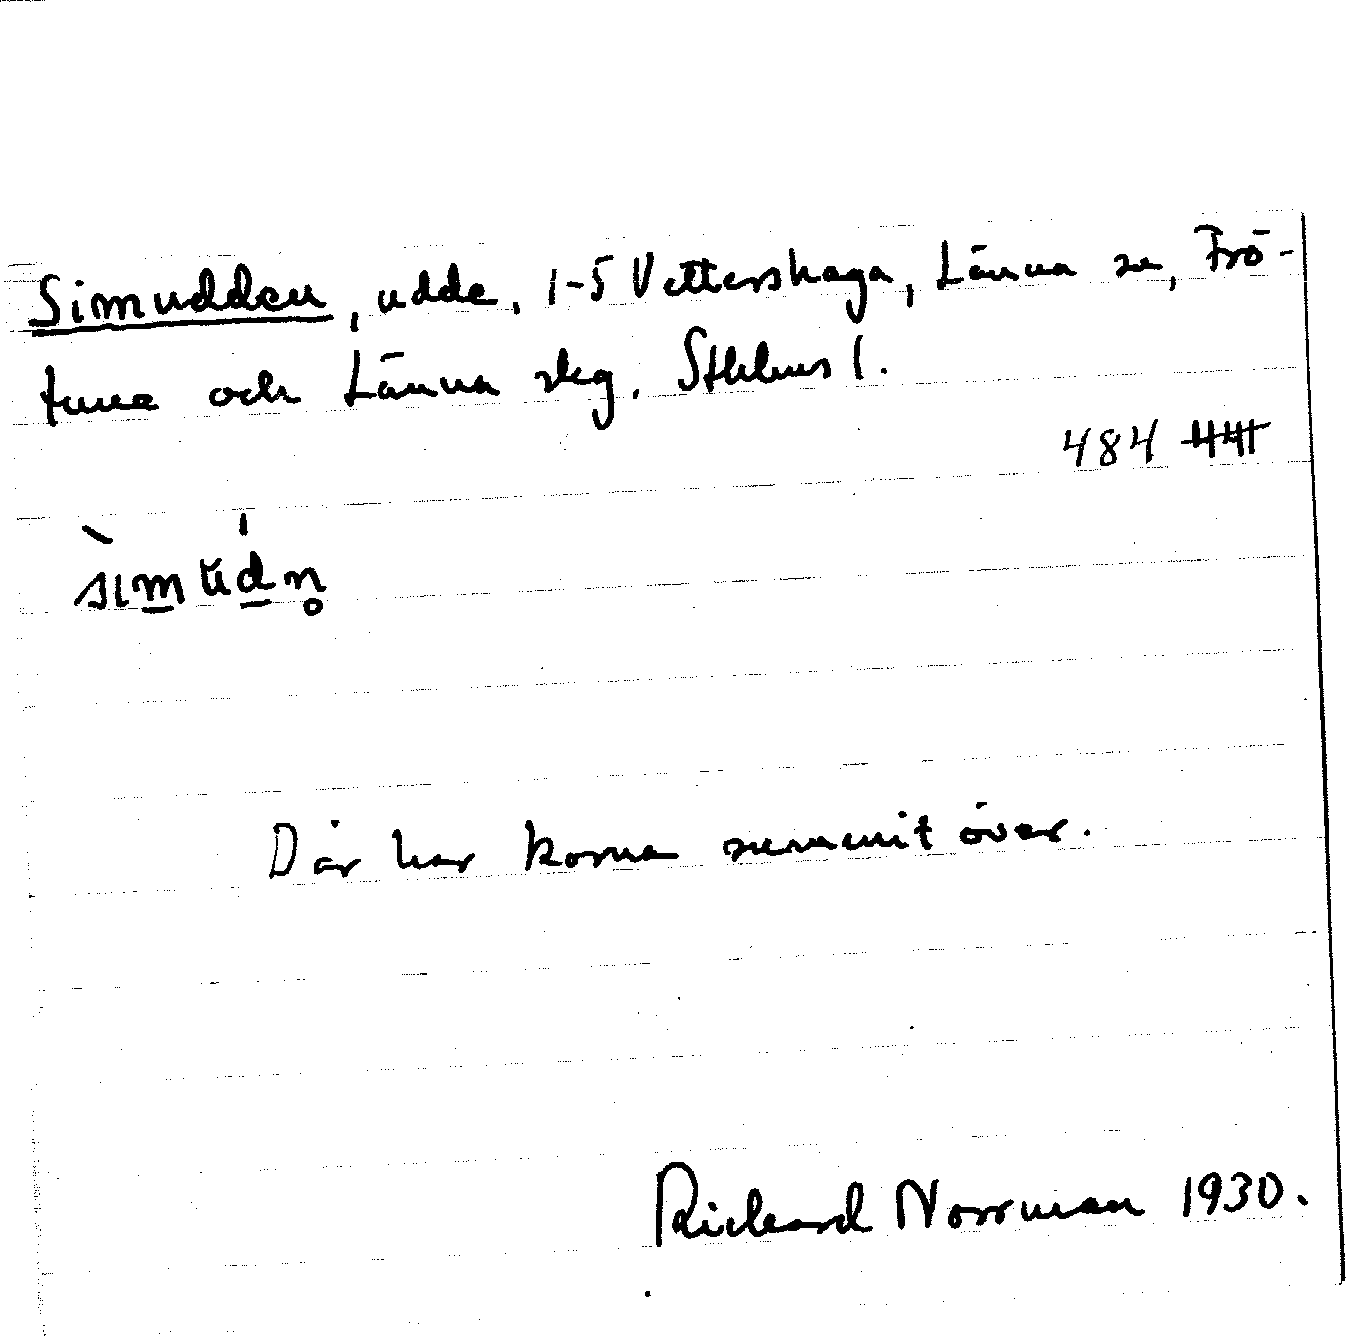 Simudden, udde, 1-5 Vettershaga, Länna sn, Frö-
tuna och Länna skg, Sthlms l.
484
s̀ım̲ŭd̲́n̥
Där har korna summit över.
Rickard Norrman 1930.